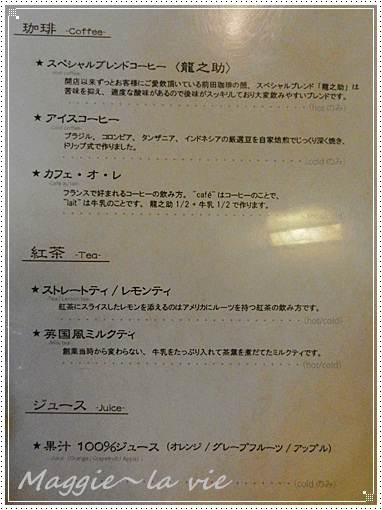 珈琲 -Coffee-
★ スペシャルブレンドコーヒー〈龍之助〉
開店以来ずっとお客様にご愛飲頂いている前田珈琲の顔、スペシャルブレンド「龍之助」は
苦味を抑え、適度な酸味があるので後味がスッキリしており大変飲みやすいブレンドです。
(hot のみ)
★ アイスコーヒー
ブラジル、コロンビア、タンザニア、インドネシアの厳選豆を自家焙煎でじっくり深く焼き、
ドリップ式で作りました。
(cold のみ)
★ カフェ・オ・レ
Cafe au lait
フランスで好まれるコーヒーの飲み方。"café"はコーヒーのことで、
"lait"は牛乳のことです。龍之助 1/2 + 牛乳 1/2 で作ります。
紅茶 -Tea-
★ ストレートティ / レモンティ
Tea / Lemon tea
紅茶にスライスしたレモンを添えるのはアメリカにルーツを持つ紅茶の飲み方です。
(hot/cold)
★ 英国風ミルクティ
Milk tea
創業当時から変わらない、牛乳をたっぷり入れて茶葉を煮だてたミルクティです。
(hot/cold)
ジュース -Juice-
★ 果汁 100%ジュース（オレンジ / グレープフルーツ / アップル）
Juice (Orange / Grapefruit / Apple)
(cold のみ)
Maggie~la vie